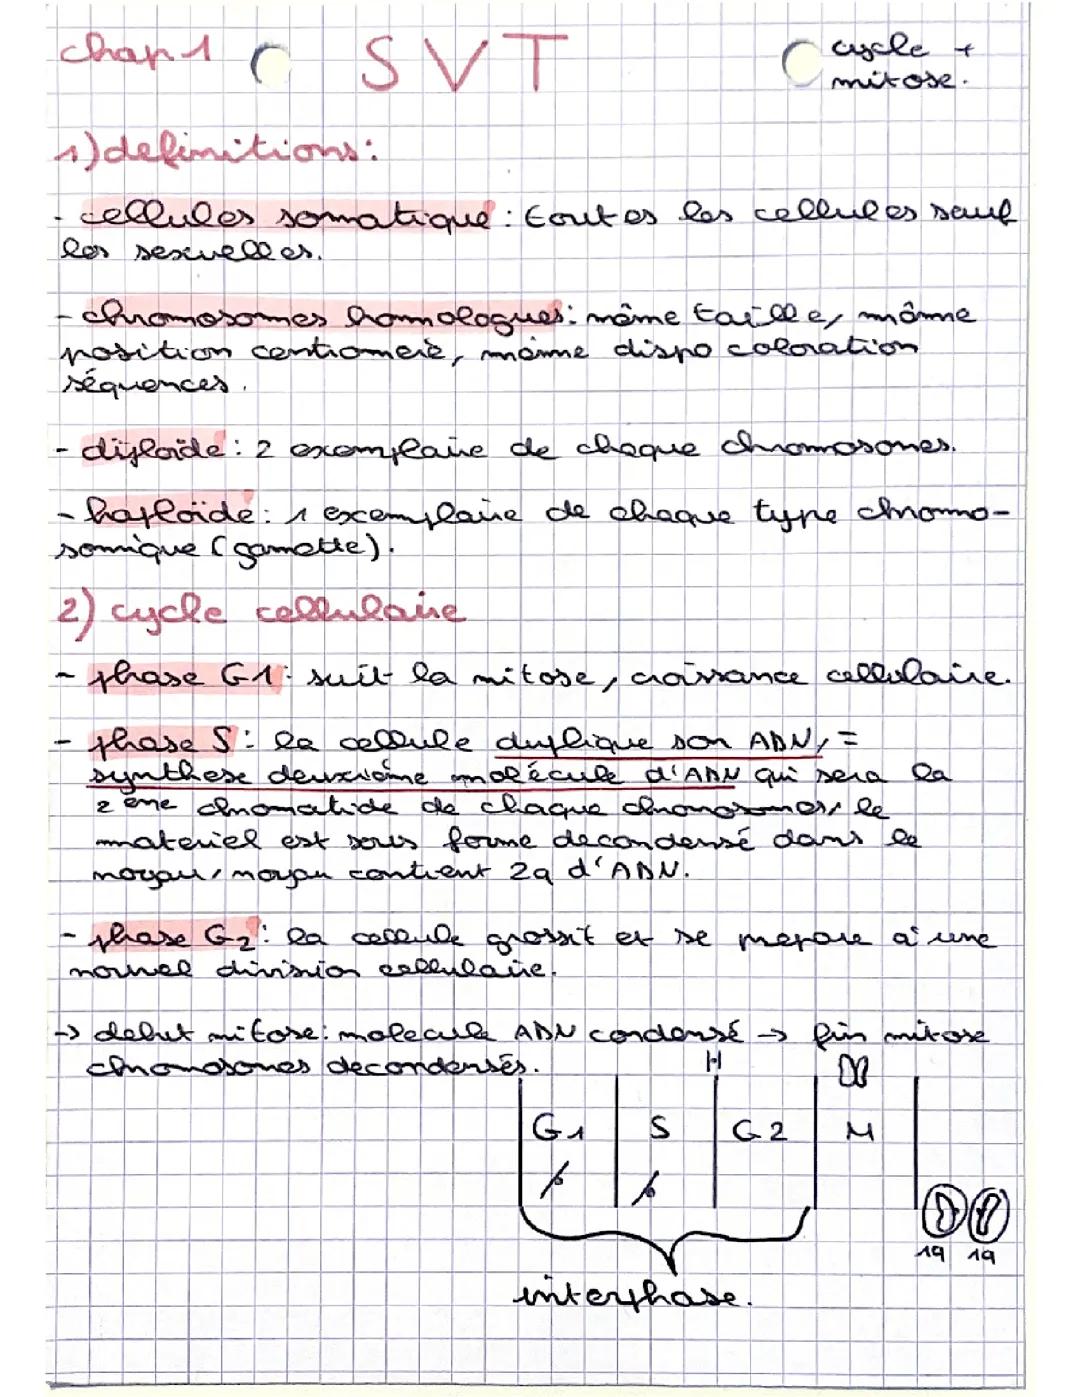 chap 1 SVT cycle +
mitose.
1) definitions:
- cellules somatique : toutes les cellules sauf
les sexuelles.
- chromosomes homologues: même taille, même
position centromere, même dispo coloration
séquences.
- diploïde : 2 exemplaire de chaque chromosomes.
- haploïde : 1 excemplaire de chaque type chromo-
somique (gamette).
2) cycle cellulaire
- phase G1: suit la mitose, croissance cellulaire.
- phase S : la cellule duplique son ADN, =
synthese deuxième molécule d'ADN qui sera la
2 ème chromatide de chaque chromosomes, le
materiel est sous forme decondensé dans le
noyau, noyau contient 2q d'ADN.
- phase G2 : la cellule grossit et se prepare à une
nouvel division cellulaire.
-> debut mitose: molecule ADN condensé -> fin mitose
chromosomes decondensés.
G1 S G2 M
1q 1q
interphase.